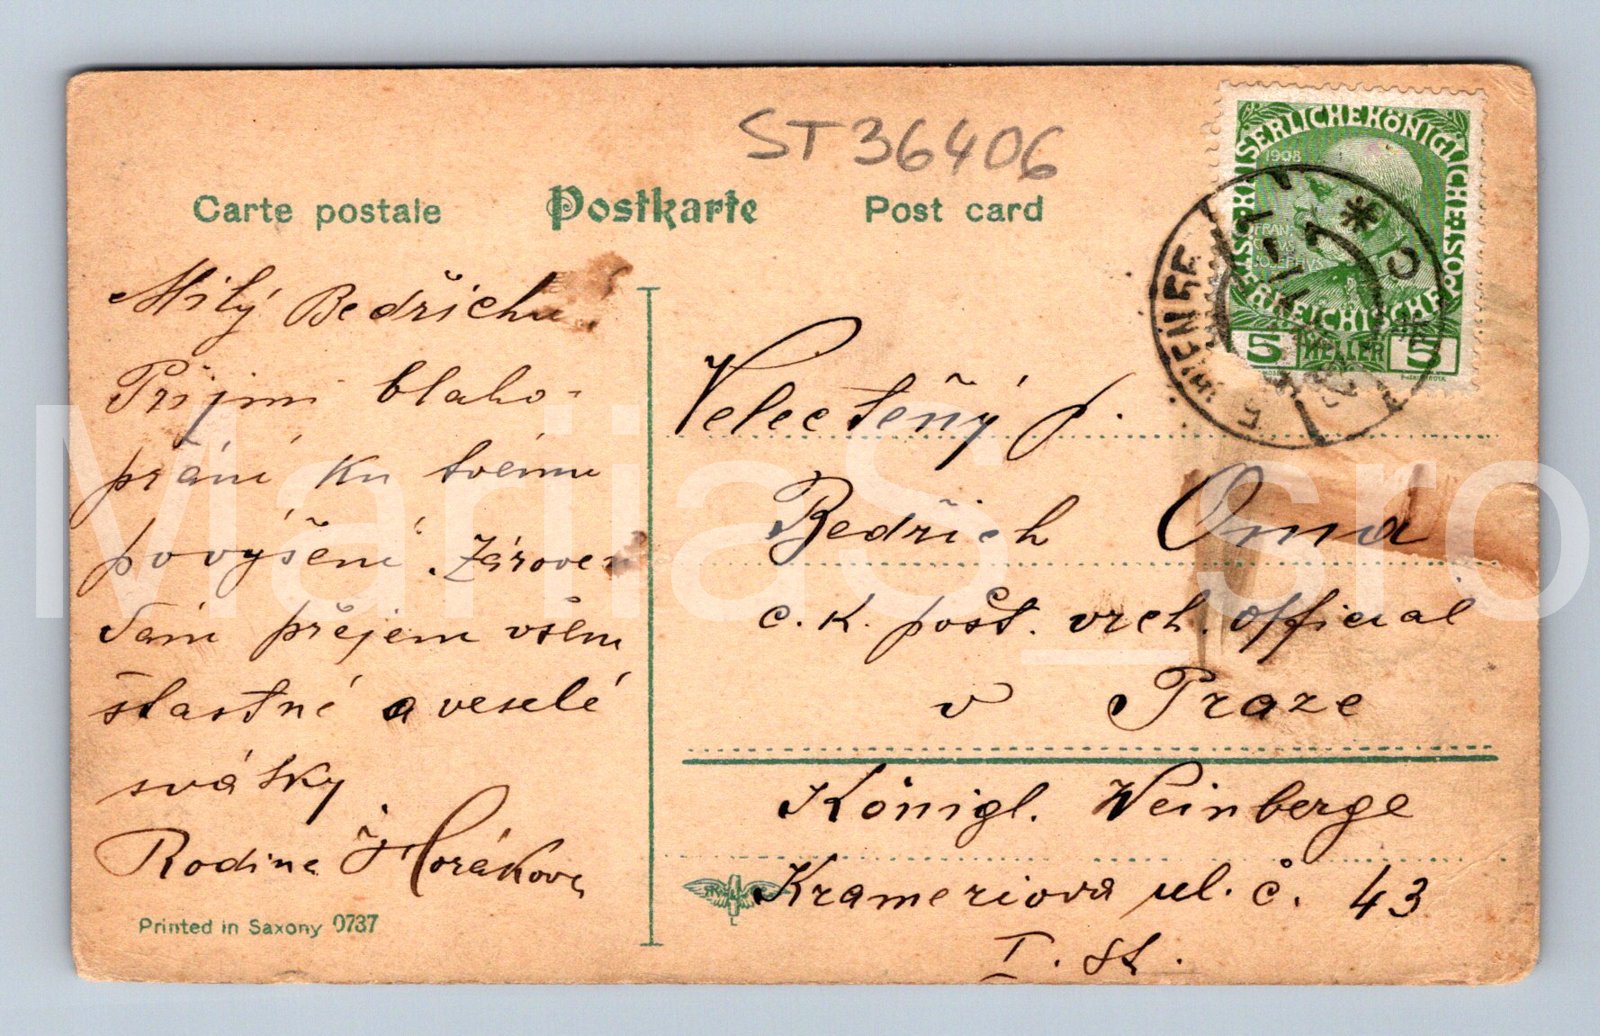 ST36406
Carte postale Postkarte Post card
KAISERLICHE KÖNIGLICHE
1908
5 HELLER 5
Milý Bedřichu!
Prijmi blaho-
přání ku tvému
povýšení. Zároven
Vám přejem všem
šťastné a veselé
svátky
Rodina J Horákova
Printed in Saxony 0737
Velectěný p.
Bedřich Oma
c. k. pošt. vrch. official
v Praze
Königl. Weinberge
Krameriova ul. č. 43
I. st.
MarijaS_sro